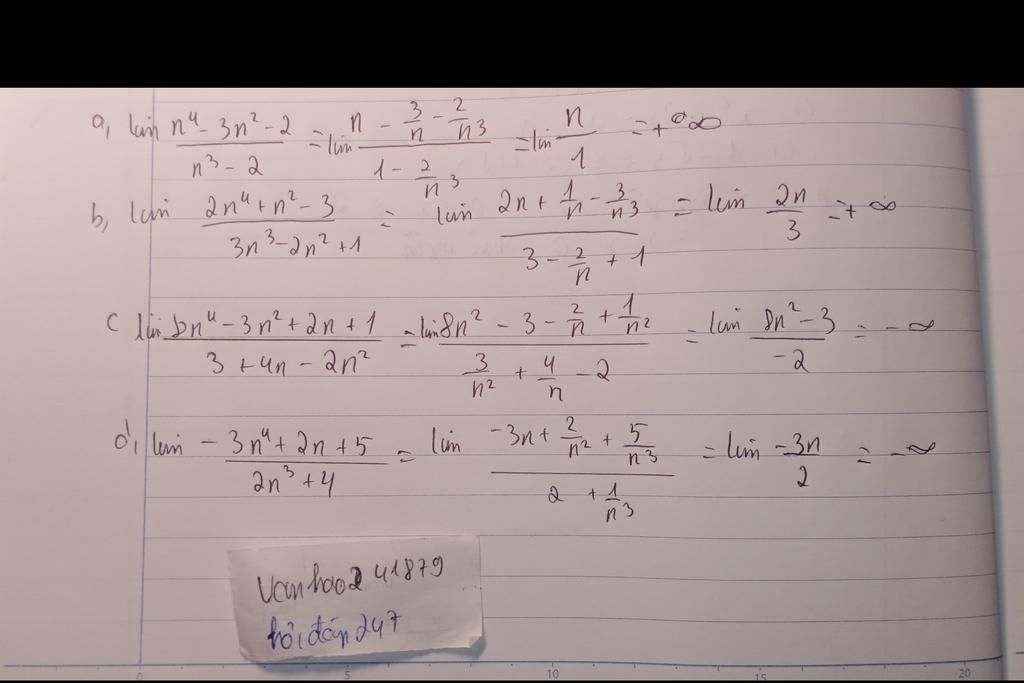 a, lim (n⁴ - 3n² - 2)/(n³ - 2) = lim (n - 3/n - 2/n³)/(1 - 2/n³) = lim n/1 = +∞
b, lim (2n⁴ + n² - 3)/(3n³ - 2n² + 1) = lim (2n + 1/n - 3/n³)/(3 - 2/n + 1) = lim 2n/3 = + ∞
c lim (8n⁴ - 3n² + 2n + 1)/(3 + 4n - 2n²) = lim (8n² - 3 - 2/n + 1/n²)/(3/n² + 4/n - 2) = lim (8n² - 3)/(-2) = - ∞
d, lim - (3n⁴ + 2n + 5)/(2n³ + 4) = lim (-3n + 2/n² + 5/n³)/(2 + 1/n³) = lim (-3n)/2 = - ∞
vanhao241879
hỏi đáp 247
0 5 10 15 20